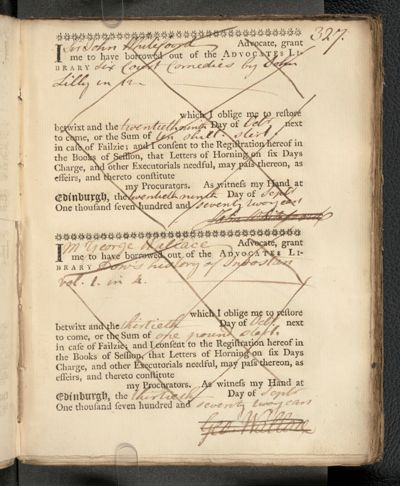 327.
I Sir John Whitefoord Advocate, grant
me to have borrowed out of the ADVOCATES LI-
BRARY Six Court Comedies by John
Lilly in
which I oblige me to reſtore
betwixt and the twentieth ninth Day of Octr next
to come, or the Sum of ten shill: sterl:
in caſe of Failzie; and I conſent to the Regiſtration hereof in
the Books of Seſſion, that Letters of Horning on ſix Days
Charge, and other Executorials needful, may paſs thereon, as
effeirs, and thereto conſtitute
my Procurators. As witneſs my Hand at
Edinburgh, the twentieth ninth Day of Septr
One thouſand ſeven hundred and seventy two years
John Whitefoord
I Mr George Wallace Advocate, grant
me to have borrowed out of the ADVOCATES LI-
BRARY Dow's history of Indostan
vol. 1. in 4.
which I oblige me to reſtore
betwixt and the thirtieth Day of Octr next
to come, or the Sum of one pound sterl.
in caſe of Failzie; and I conſent to the Regiſtration hereof in
the Books of Seſſion, that Letters of Horning on ſix Days
Charge, and other Executorials needful, may paſs thereon, as
effeirs, and thereto conſtitute
my Procurators. As witneſs my Hand at
Edinburgh, the thirtieth Day of Septr
One thouſand ſeven hundred and seventy two years
Geo: Wallace